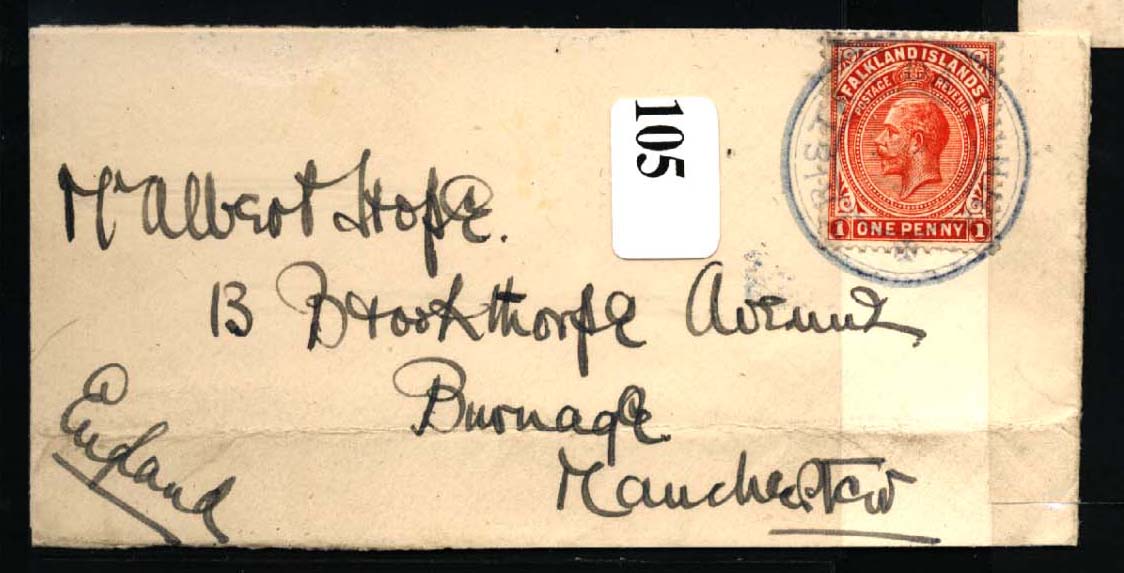 FALKLAND ISLANDS
POSTAGE REVENUE
1 ONE PENNY 1
105
Mr Albert Hope.
13 Brookthorpe Avenue
Burnage
Manchester
England